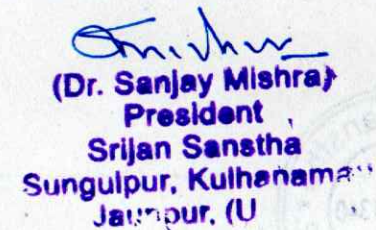 (Dr. Sanjay Mishra)
President
Srijan Sanstha
Sungulpur,
Jaunpur. (U